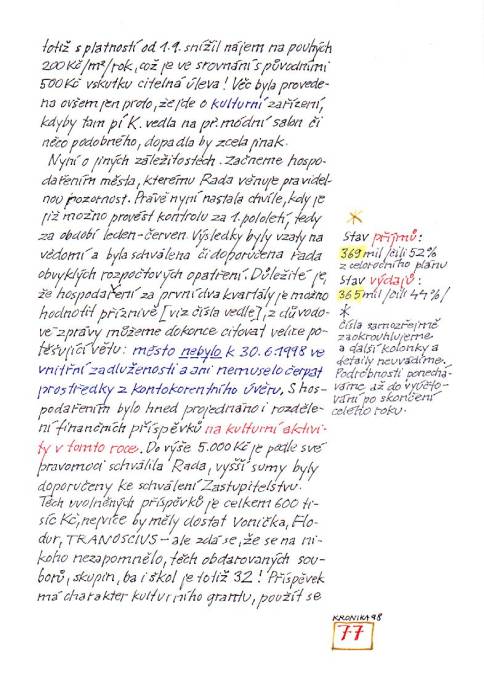 totiž s platností od 1.1. snížil nájem na pouhých
200 Kč/m²/rok, což je ve srovnání s původními
500 Kč vskutku citelná úleva! Věc byla provede-
na ovšem jen proto, že jde o kulturní zařízení,
kdyby tam pí K. vedla na př. módní salon či
něco podobného, dopadla by zcela jinak.
Nyní o jiných záležitostech. Začneme hospo-
dařením města, kterému Rada věnuje pravidel-
nou pozornost. Právě nyní nastala chvíle, kdy je
již možno provést kontrolu za 1. pololetí, tedy
za období leden-červen. Výsledky byly vzaty na
vědomí a byla schválena či doporučena řada
obvyklých rozpočtových opatření. Důležité je,
že hospodaření za první dva kvartály je možno
hodnotit příznivě [viz čísla vedle], z důvodo-
vé zprávy můžeme dokonce citovat velice po-
těšující větu: město nebylo k 30.6.1998 ve
vnitřní zadluženosti a ani nemuselo čerpat
prostředky z kontokorentního úvěru. S hos-
podařením bylo hned projednáno i rozděle-
ní finančních příspěvků na kulturní aktivi-
ty v tomto roce. Do výše 5.000 Kč je podle své
pravomoci schválila Rada, vyšší sumy byly
doporučeny ke schválení Zastupitelstvu.
Těch uvolněných příspěvků je celkem 600 ti-
síc Kč, nejvíce by měly dostat Vonička, Flo-
dur, TRANOSCIUS – ale zdá se, že se na ni-
koho nezapomnělo, těch obdarovaných sou-
borů, skupin, ba i škol je totiž 32! Příspěvek
má charakter kulturního grantu, použít se
Stav příjmů:
369 mil/čili 52%
z celoročního plánu
Stav výdajů:
365 mil/čili 47%/
Čísla samozřejmě
zaokrouhlujeme
a další kolonky a
detaily neuvádíme.
Podrobnosti ponechá-
váme až do vyúčto-
vání po skončení
celého roku.
KRONIKA 98
77